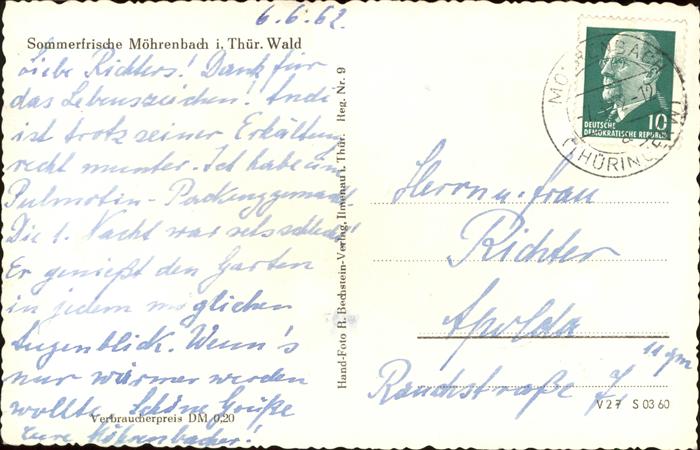 6.6.62.
Sommerfrische Möhrenbach i. Thür. Wald
Liebe Richters! Dank für
das Lebenszeichen! Andi
ist trotz seiner Erkältung
recht munter. Ich habe ihm
Pulmotin-Packg gemacht.
Die 1. Nacht war sehr schlecht!
Er genießt den Garten
in jedem möglichen
Augenblick. Wenn's
nur wärmer werden
wollte. Schöne Grüße
Eure Möhrenbacher!
Verbraucherpreis DM 0,20
Hand-Foto R. Bechstein-Verlag, Ilmenau i. Thür. Reg. Nr. 9
10
DEUTSCHE
DEMOKRATISCHE REPUBLIK
(THÜRING
Herrn u. Frau
Richter
Apolda
Rauchstraße
V 2 7 S 03 60